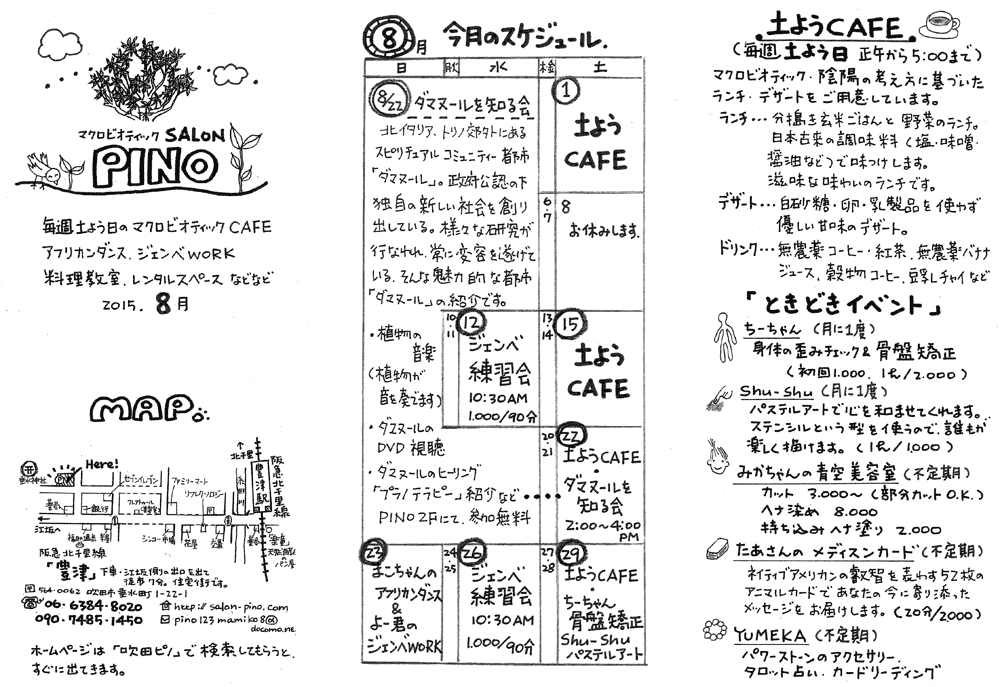 マクロビオティック SALON
PINO
毎週土よう日のマクロビオティックCAFE
アフリカンダンス、ジェンベWORK
料理教室、レンタルスペースなどなど
2015. 8月
MAP
Here!
垂水神社
セブンイレブン
ファミリーマート
北千里
阪急北千里線
豊津駅
江坂へ
阪急北千里線
「豊津」下車・江坂側の出口を出て
徒歩7分。住宅街です。
〒564-0062 吹田市垂水町1-22-1
☎06・6384・8020
090・7485・1450
http://salon-pino.com
pino123mamiko8@
docomo.ne
ホームページは「吹田ピノ」で検索してもらうと、
すぐに出てきます。
8月 今月のスケジュール.
日 月火 水 木金 土
8/22 ダマヌールを知る会
北イタリア、トリノ郊外にある
スピリチュアルコミュニティー都市
「ダマヌール」。政府公認の下
独自の新しい社会を創り
出している。様々な研究が
行なわれ、常に変容を遂げて
いる、そんな魅力的な都市
「ダマヌール」の紹介です。
・植物の
音楽
(植物が
音を奏でます)
・ダマヌールの
DVD視聴
・ダマヌールのヒーリング
「プラノテラピー」紹介など・・・・
PINO2Fにて、参加無料
1
土よう
CAFE
6・7
8
お休みします.
10・11
12
ジェンベ
練習会
10:30AM
1.000/90分
13・14
15
土よう
CAFE
20・21
22
土ようCAFE
・
ダマヌールを
知る会
2:00〜4:00
PM
23
まこちゃんの
アフリカンダンス
&
よー君の
ジェンベWORK
24・25
26
ジェンベ
練習会
10:30AM
1.000/90分
27・28
29
土ようCAFE
・
ちーちゃん
骨盤矯正
Shu-Shu
パステルアート
土ようCAFE.
(毎週土よう日 正午から5:00まで)
マクロビオティック・陰陽の考え方に基づいた
ランチ・デザートをご用意しています。
ランチ…分搗き玄米ごはんと野菜のランチ。
日本古来の調味料(塩・味噌・
醤油など)で味つけします。
滋味な味わいのランチです。
デザート…白砂糖・卵・乳製品を使わず
優しい甘味のデザート。
ドリンク…無農薬コーヒー・紅茶、無農薬バナナ
ジュース、穀物コーヒー、豆乳チャイなど
「ときどきイベント」
ちーちゃん(月に1度)
身体の歪みチェック&骨盤矯正
(初回1.000、1h/2.000)
Shu-Shu(月に1度)
パステルアートで心を和ませてくれます。
ステンシルという型を使うので、誰もが
楽しく描けます。(1h/1.000)
みかちゃんの青空美容室(不定期)
カット 3.000〜(部分カットO.K.)
ヘナ染め 8.000
持ち込みヘナ塗り 2.000
たあさんのメディスンカード(不定期)
ネイティブアメリカンの叡智を表わす52枚の
アニマルカードであなたの今に寄り添った
メッセージをお届けします。(20分/2.000)
YUMEKA(不定期)
パワーストーンのアクセサリー.
タロット占い・カードリーディング